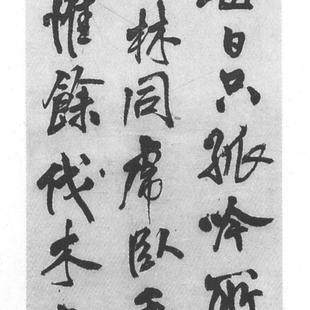 日只孤吟所
林同席臥
惟餘伐木